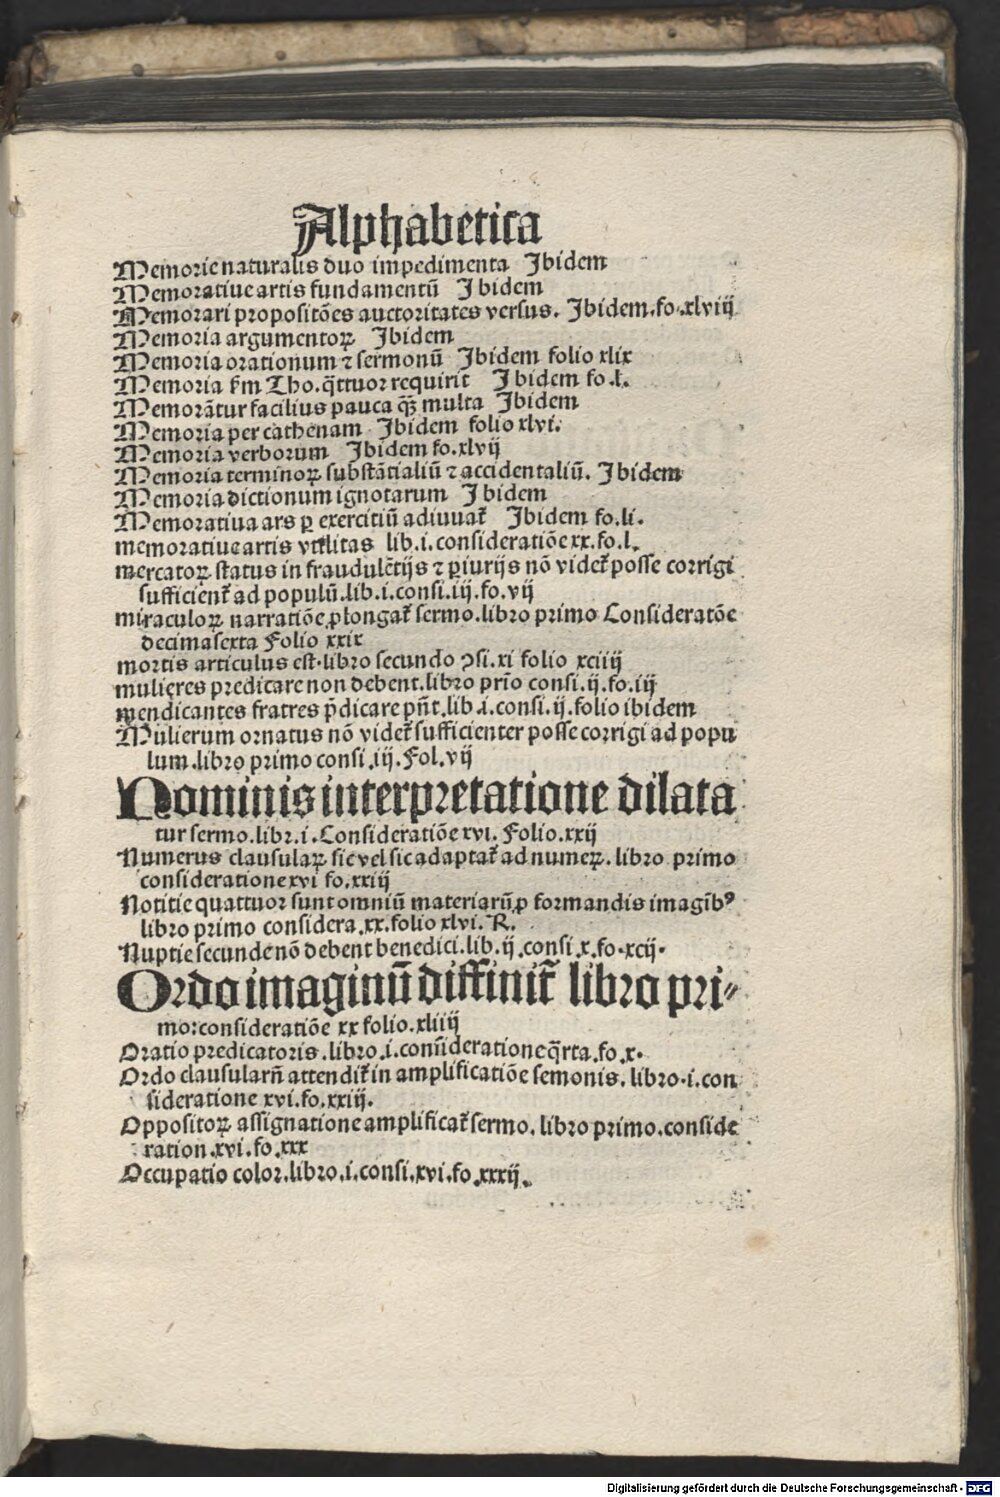 Alphabetica
Memorie naturalis duo impedimenta Ibidem
Memoratiue artis fundamentū Ibidem
Memorari propositiões auctoritates versus. Ibidem.fo.xlviij
Memoria argumentoꝝ Ibidem
Memoria orationum ⁊ sermonū Ibidem folio xlix
Memoria ẜm Tho. q̄ttuor requirit Ibidem fo.l.
Memorātur facilius pauca qꝫ multa Ibidem
Memoria per cathenam Ibidem folio xlvi.
Memoria verborum Ibidem fo.xlvij
Memoria terminoꝝ substātialiū ⁊ accidentaliū. Ibidem
Memoria dictionum ignotarum Ibidem
Memoratiua ars ꝑ exercitiū adiuuat᷑ Ibidem fo.li.
memoratiue artis vtilitas lib.i.consideratiōe xx.fo.l.
mercatoꝝ status in fraudulētijs ⁊ ꝑiurijs nō videt᷑ posse corrigi
sufficient᷑ ad populū.lib.i.consi.iij.fo.vij
miraculoꝝ narratiōe ꝓlongat᷑ sermo.libro primo Consideratōe
decimasexta Folio xxix
mortis articulus est.libro secundo ↄsi.xi folio xciiij
mulieres predicare non debent.libro prīo consi.ij.fo.iij
mendicantes fratres p̄dicare pn̄t.lib.i.consi.ij.folio ibidem
Mulierum ornatus nō videt᷑ sufficienter posse corrigi ad popu
lum.libro primo consi.iij.Fol.vij
Nominis interpretatione dilata
tur sermo.libr.i.Consideratiōe xvi. Folio.xxij
Numerus clausulaꝝ sic vel sic adaptat᷑ ad numeꝝ. libro primo
consideratione xvi fo.xxiij
Notitie quattuor sunt omniū materiarū ꝓ formandis imagībꝰ
libro primo considera.xx.folio xlvi. R.
Nuptie secunde nō debent benedici.lib.ij.consi.x.fo.xcij.
Ordo imaginū diffinit᷑ libro pri⸗
mo:consideratiōe xx folio.xliiij
Oratio predicatoris.libro.i.consideratione q̄rta.fo.x.
Ordo clausularū attendit᷑ in amplificatiōe semonis.libro.i.con
sideratione xvi.fo.xxiij.
Oppositoꝝ assignatione amplificat᷑ sermo.libro primo.conside
ration.xvi.fo.xxx
Occupatio color.libro.i.consi.xvi.fo.xxxij.
Digitalisierung gefördert durch die Deutsche Forschungsgemeinschaft - DFG